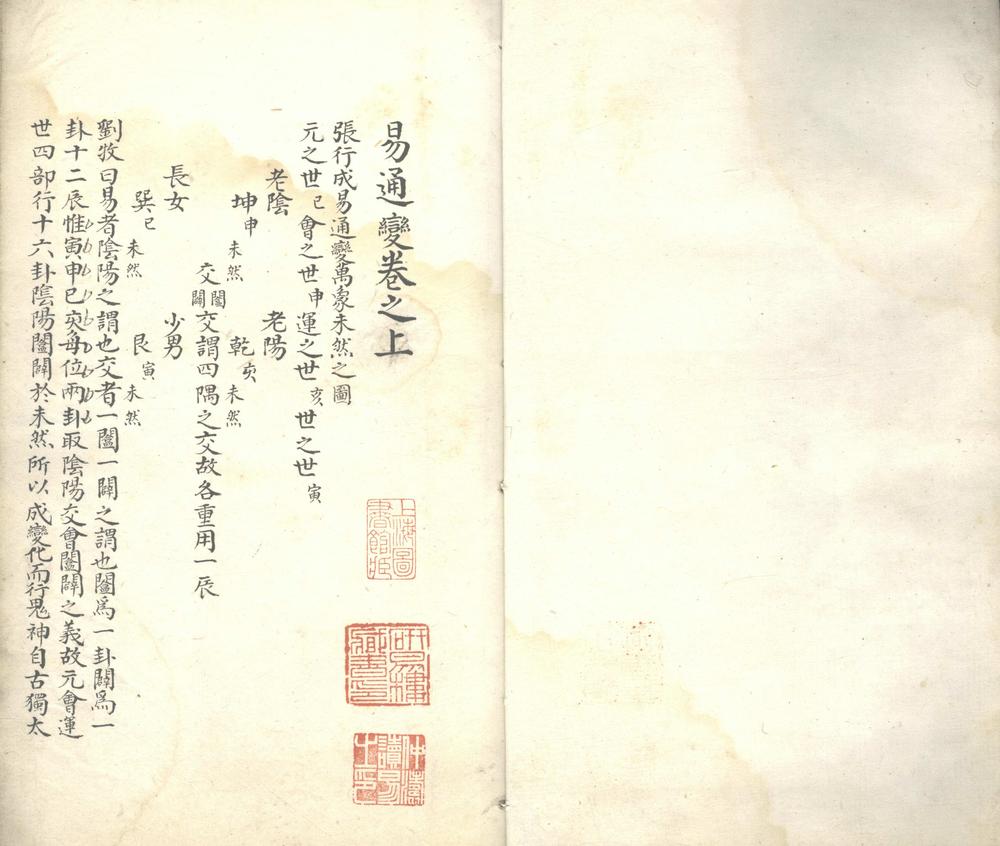 易通變卷之上
張行成易通變萬象未然之圖
元之世巳會之世申運之世亥世之世寅
老陰 老陽
坤申未然 乾亥未然
交闔闢交謂四隅之交故各重用一辰
長女 少男
巽巳未然 艮寅未然
劉牧曰易者陰陽之謂也交者一闔一闢之謂也闔爲一卦闢爲一
卦十二辰惟寅申巳亥每位兩卦取陰陽交會闔闢之義故元會運
世四部行十六卦陰陽闔闢於未然所以成變化而行鬼神自古獨太
上海圖書館藏
研易樓藏書印
仲濤讀易之印